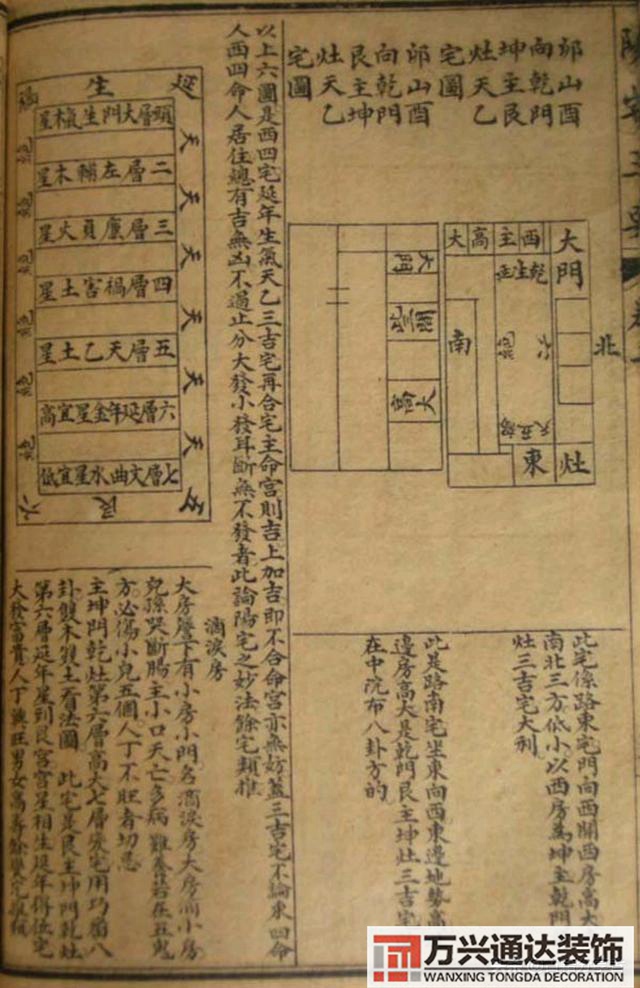 陽宅三要
卯山酉
向乾門
坤主艮
灶天乙
宅圖
卯山酉
向乾門
艮主坤
灶天乙
宅圖
大門
西主高大
乾生
北
六
南
東
灶
大門
高大
此宅係路東宅門向西開西房高大
南北三方低小以西房為坤主乾門
灶三吉宅大利
此是路南宅坐東向西東邊地勢高
邊房高大是乾門艮主坤灶三吉宅
在中院布八卦方的
以上六圖是西四宅延年生氣天乙三吉宅再合宅主命宮則吉上加吉即不合命宮亦無妨蓋三吉宅不論東四命
人西四命人居住總有吉無凶不過止分大發小發耳斷無不發者此論陽宅之妙法餘宅類推
延生禍
頭層大門生氣木星
二層左輔木星
三層廉貞火星
四層禍害土星
五層天乙土星
六層延年金星宜高
七層文曲水星宜低
天
天
天
天
天
天
五艮六
滴淚房
大房簷下有小房小門名滴淚房大房滴小房
兒孫哭斷腸主小口夭亡多病難養若在五鬼
方必傷小兒五個人丁不旺者切忌
主坤門乾灶第六層高大七層變宅用巧番八
卦雙木雙土看法圖 此宅是艮主坤門乾灶
第六層延年星到艮宮宮星相生延年得位宅
大發富貴人丁
万兴通达装饰
WANXING TONGDA DECORATION